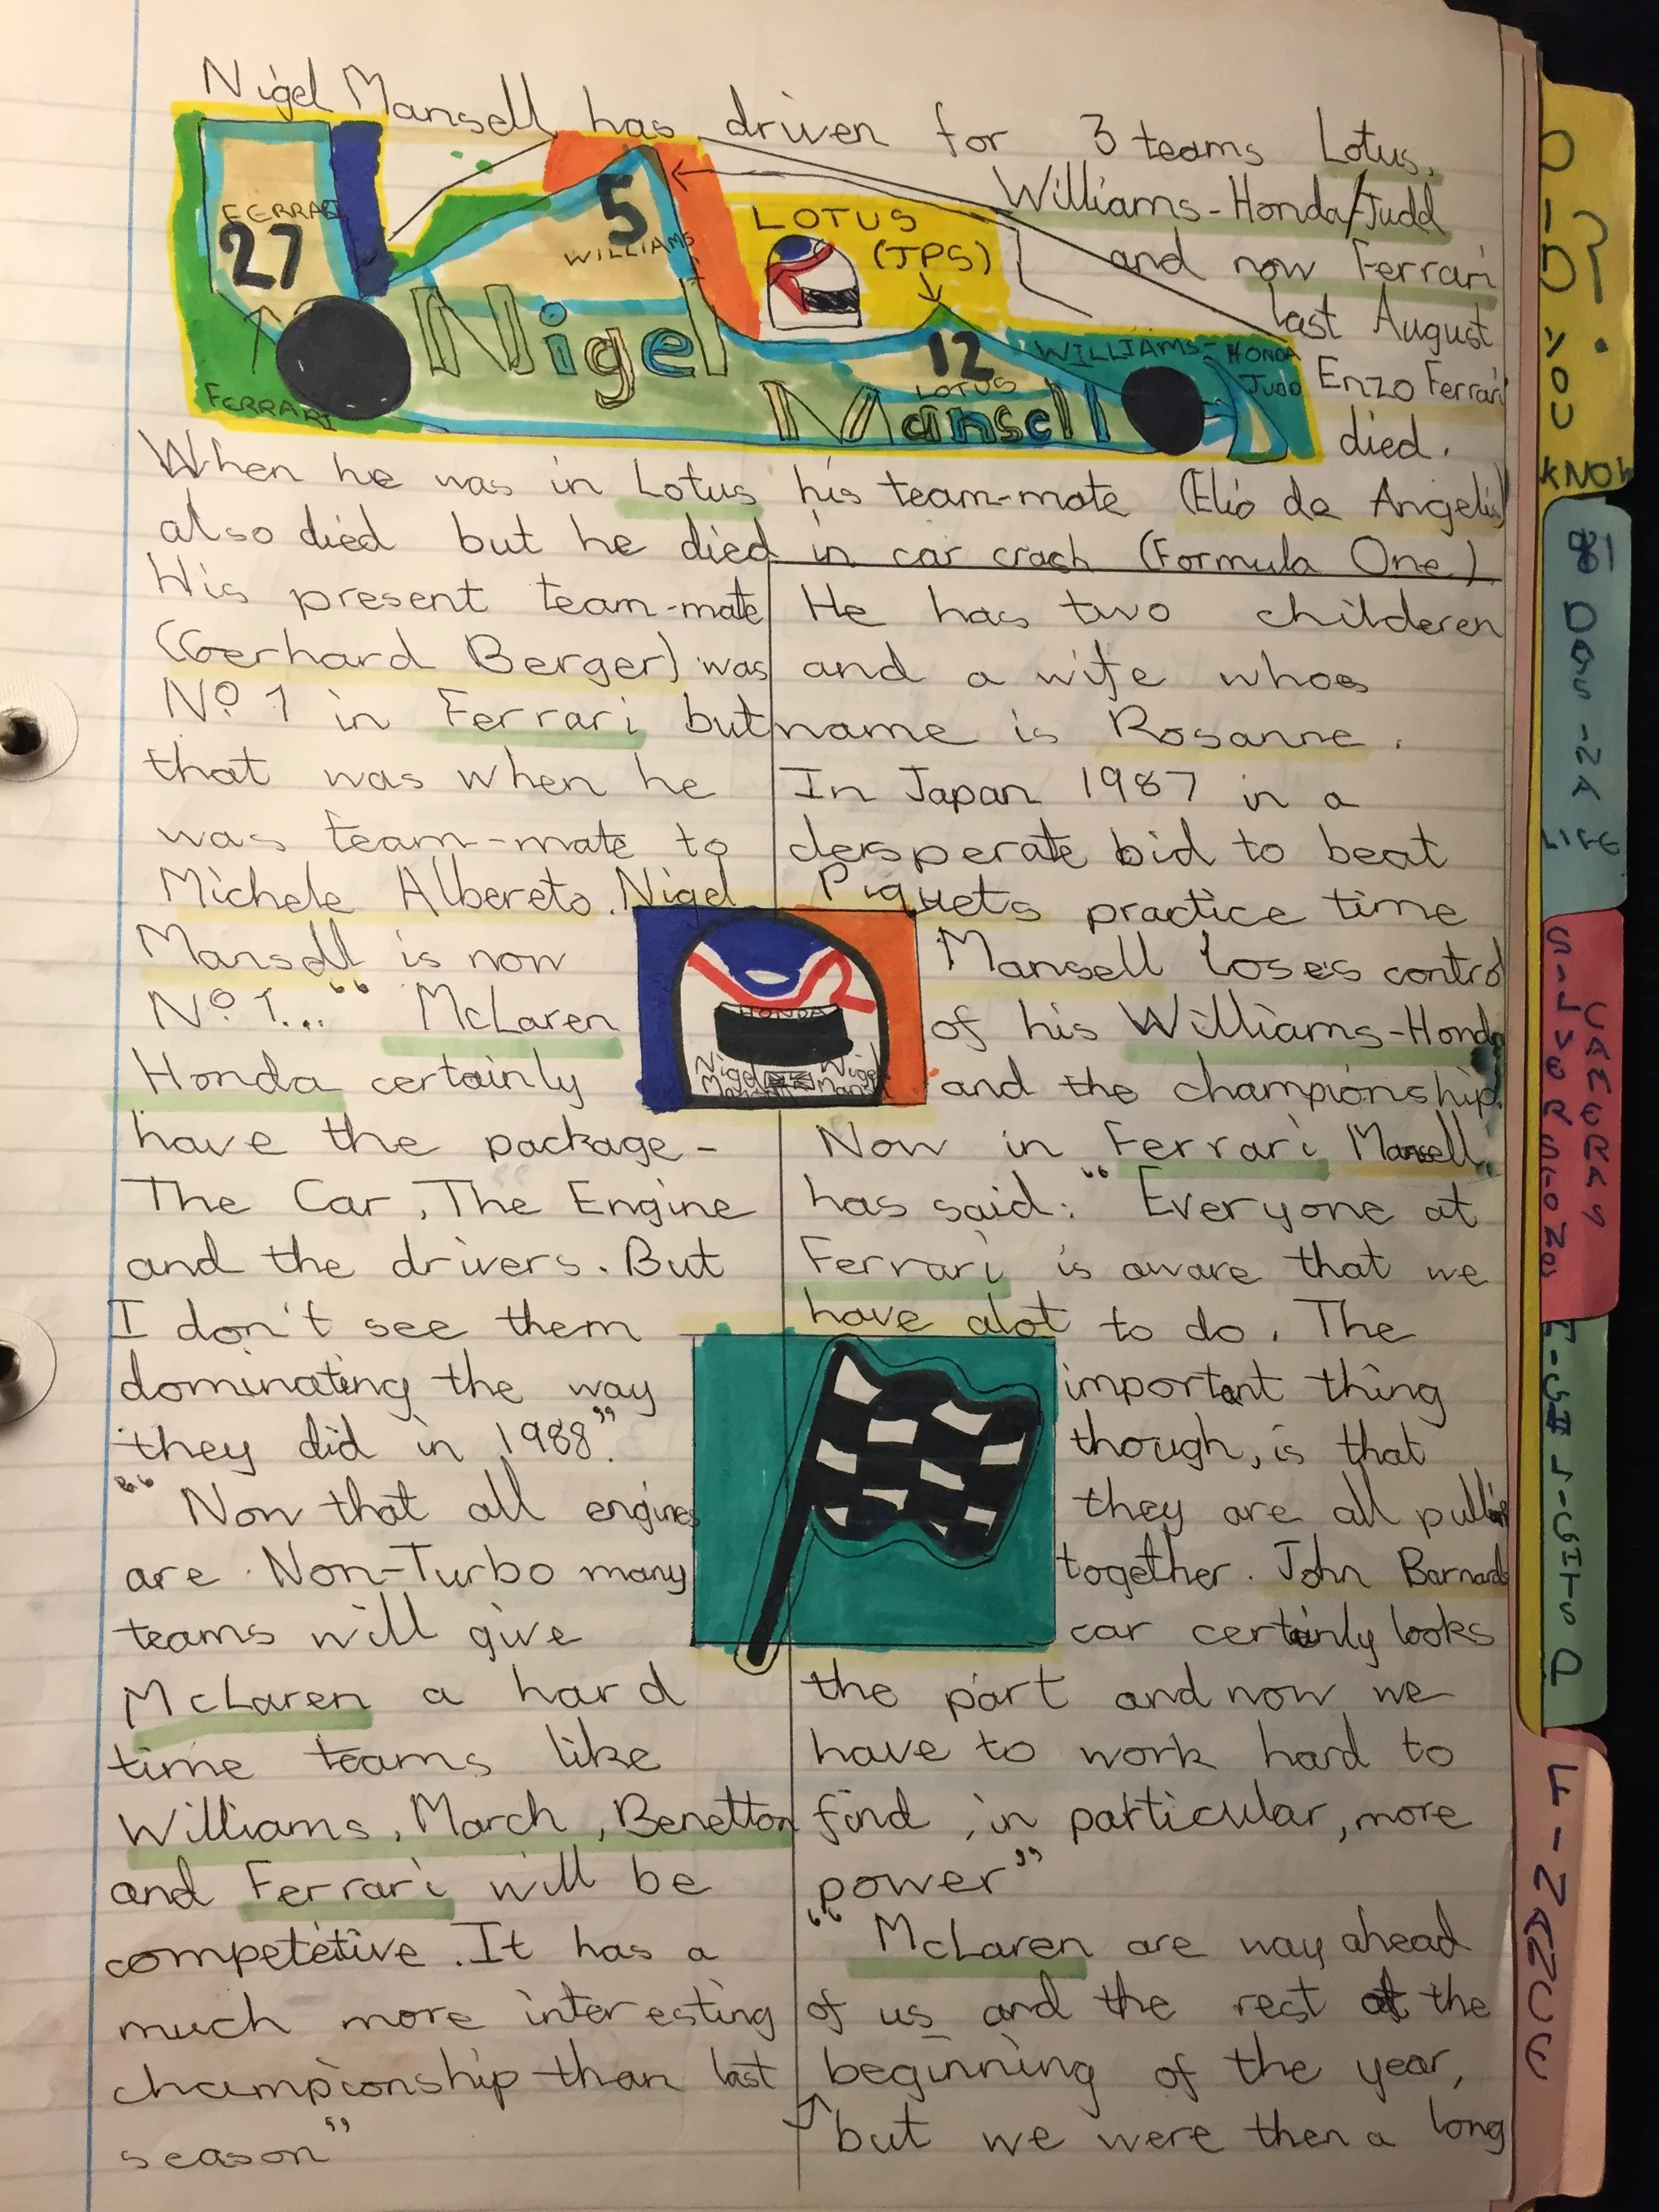 Nigel Mansell has driven for 3 teams Lotus,
Williams-Honda/Judd
and now Ferrari
last August
Enzo Ferrari
died.
FERRARI
27
5
WILLIAMS
LOTUS
(JPS)
12
LOTUS
WILLIAMS-HONDA
JUDD
FERRARI
Nigel
Mansell
When he was in Lotus his team-mate (Elio de Angelis)
also died but he died in car crash (Formula One)
His present team-mate
(Gerhard Berger) was
Nº 1 in Ferrari but
that was when he
was team-mate to
Michele Albereto. Nigel
Mansell is now
Nº 1... “ McLaren
Honda certainly
have the package -
The Car, The Engine
and the drivers. But
I don't see them
dominating the way
they did in 1988”.
“ Now that all engines
are Non-Turbo many
teams will give
McLaren a hard
time teams like
Williams, March, Benetton
and Ferrari will be
competetive. It has a
much more interesting
championship than last
season”
He has two childeren
and a wife whos
name is Rosanne.
In Japan 1987 in a
desperate bid to beat
Piquets practice time
Mansell loses control
of his Williams-Honda
and the championship.
Now in Ferrari Mansell
has said: “ Everyone at
Ferrari is aware that we
have alot to do. The
important thing
though, is that
they are all pulling
together. John Barnards
car certainly looks
the part and now we
have to work hard to
find, in particular, more
power”
“ McLaren are way ahead
of us and the rest at the
beginning of the year,
but we were then a long
HONDA
Nigel Nigel
Mansell Mansell
DID YOU KNOW
?
DAS -N A LIFE
S-LVERSTONE
CAMERAS
F-NANCE